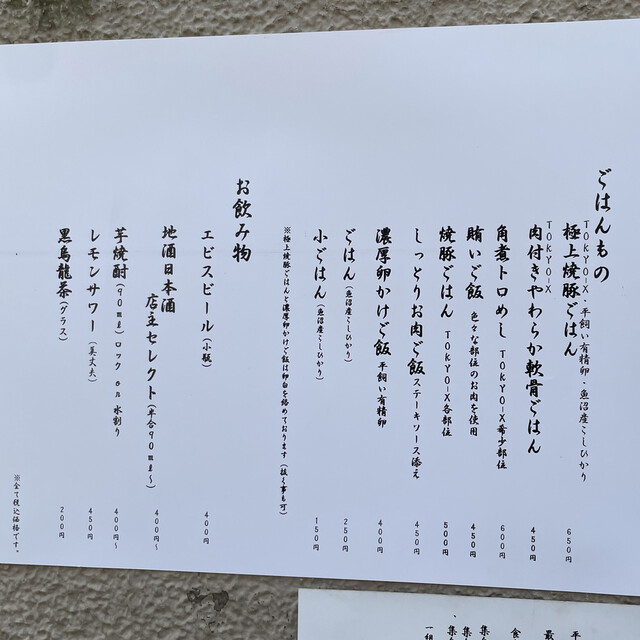 ごはんもの
TOKYO-X・平飼い有精卵・魚沼産こしひかり
極上焼豚ごはん 650円
TOKYO-X
肉付きやわらか軟骨ごはん 450円
角煮トロめし TOKYO-X希少部位 600円
賄いご飯 色々な部位のお肉を使用 450円
焼豚ごはん TOKYO-X各部位 500円
しっとりお肉ご飯 ステーキソース添え 450円
濃厚卵かけご飯 平飼い有精卵 400円
ごはん(魚沼産こしひかり) 250円
小ごはん(魚沼産こしひかり) 150円
※極上焼豚ごはんと濃厚卵かけご飯は卵白を絡めております(抜く事も可)
お飲み物
エビスビール(小瓶) 400円
地酒日本酒
店主セレクト(半合90ml〜) 400円〜
芋焼酎(90ml)ロック on 水割り 400円〜
レモンサワー(美丈夫) 450円
黒烏龍茶(グラス) 200円
※全て税込価格です。
平
最
食
集
集
、集
一組